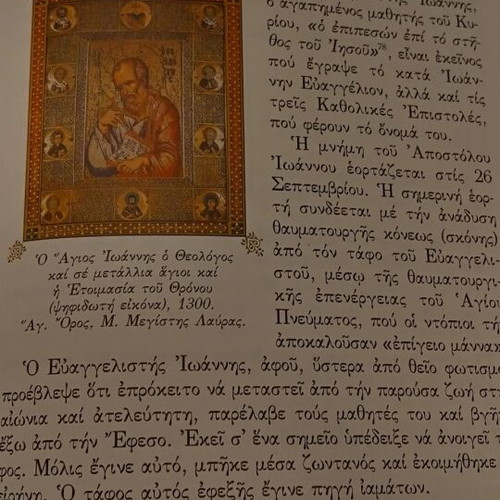 Ἰωάννης,
ὁ ἀγαπημένος μαθητής τοῦ Κυ-
ρίου, «ὁ ἐπιπεσών ἐπί τό στῆ-
θος τοῦ Ἰησοῦ»⁷⁸, εἶναι ἐκεῖνος
πού ἔγραψε τό κατά Ἰωάν-
νην Εὐαγγέλιον, ἀλλά καί τίς
τρεῖς Καθολικές Ἐπιστολές,
πού φέρουν τό ὄνομά του.
Ἡ μνήμη τοῦ Ἀποστόλου
Ἰωάννου ἑορτάζεται στίς 26
Σεπτεμβρίου. Ἡ σημερινή ἑορ-
τή συνδέεται μέ τήν ἀνάδυση
θαυματουργῆς κόνεως (σκόνης)
ἀπό τόν τάφο τοῦ Εὐαγγελι-
στοῦ, μέσῳ τῆς θαυματουργι-
κῆς ἐπενέργειας τοῦ Ἁγίου
Πνεύματος, πού οἱ ντόπιοι τή
ἀποκαλοῦσαν «ἐπίγειο μάννα
Ὁ Ἅγιος Ἰωάννης ὁ Θεολόγος
καί σέ μετάλλια ἅγιοι καί
ἡ Ἑτοιμασία τοῦ Θρόνου
(ψηφιδωτή εἰκόνα), 1300.
Ἅγ. Ὄρος, Μ. Μεγίστης Λαύρας.
Ὁ Εὐαγγελιστής Ἰωάννης, ἀφοῦ, ὕστερα ἀπό θεῖο φωτισμό
προέβλεψε ὅτι ἐπρόκειτο νά μεταστεῖ ἀπό τήν παροῦσα ζωή στ
αἰώνια καί ἀτελεύτητη, παρέλαβε τούς μαθητές του καί βγῆ
ἔξω ἀπό τήν Ἔφεσο. Ἐκεῖ σ' ἕνα σημεῖο ὑπέδειξε νά ἀνοιγεῖ τ
φος. Μόλις ἔγινε αὐτό, μπῆκε μέσα ζωντανός καί ἐκοιμήθηκε
εἰρήνη. Ὁ τάφος αὐτός ἐφεξῆς ἔγινε πηγή ἰαμάτων.